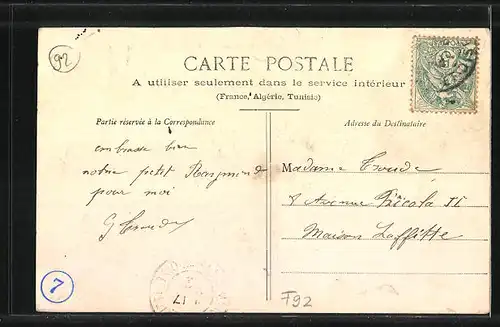 92
CARTE POSTALE
A utiliser seulement dans le service intérieur
(France, Algérie, Tunisie)
Partie réservée à la Correspondance
Adresse du Destinataire
embrasse bien
notre petit Raymond
pour moi
Madame Croude
8 Avenue Nicola II
Maison Laffitte
7
17
F92